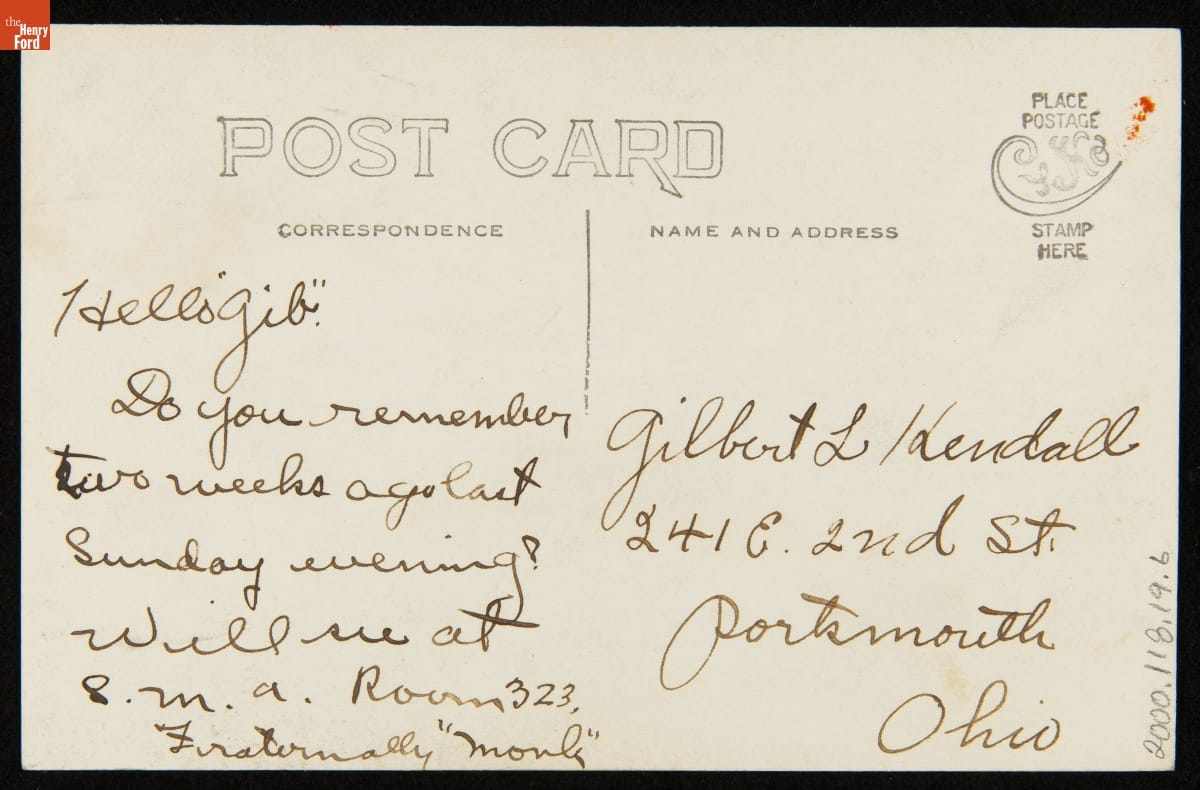 the
Henry
Ford
POST CARD
PLACE
POSTAGE
STAMP
HERE
CORRESPONDENCE
NAME AND ADDRESS
Hello "Gib".
Do you remember
two weeks ago last
Sunday evening?
Will see at
S. M. A. Room 323,
Fraternally "Monk"
Gilbert L Kendall
241 E. 2nd St.
Portsmouth
Ohio
2000.118.19.6